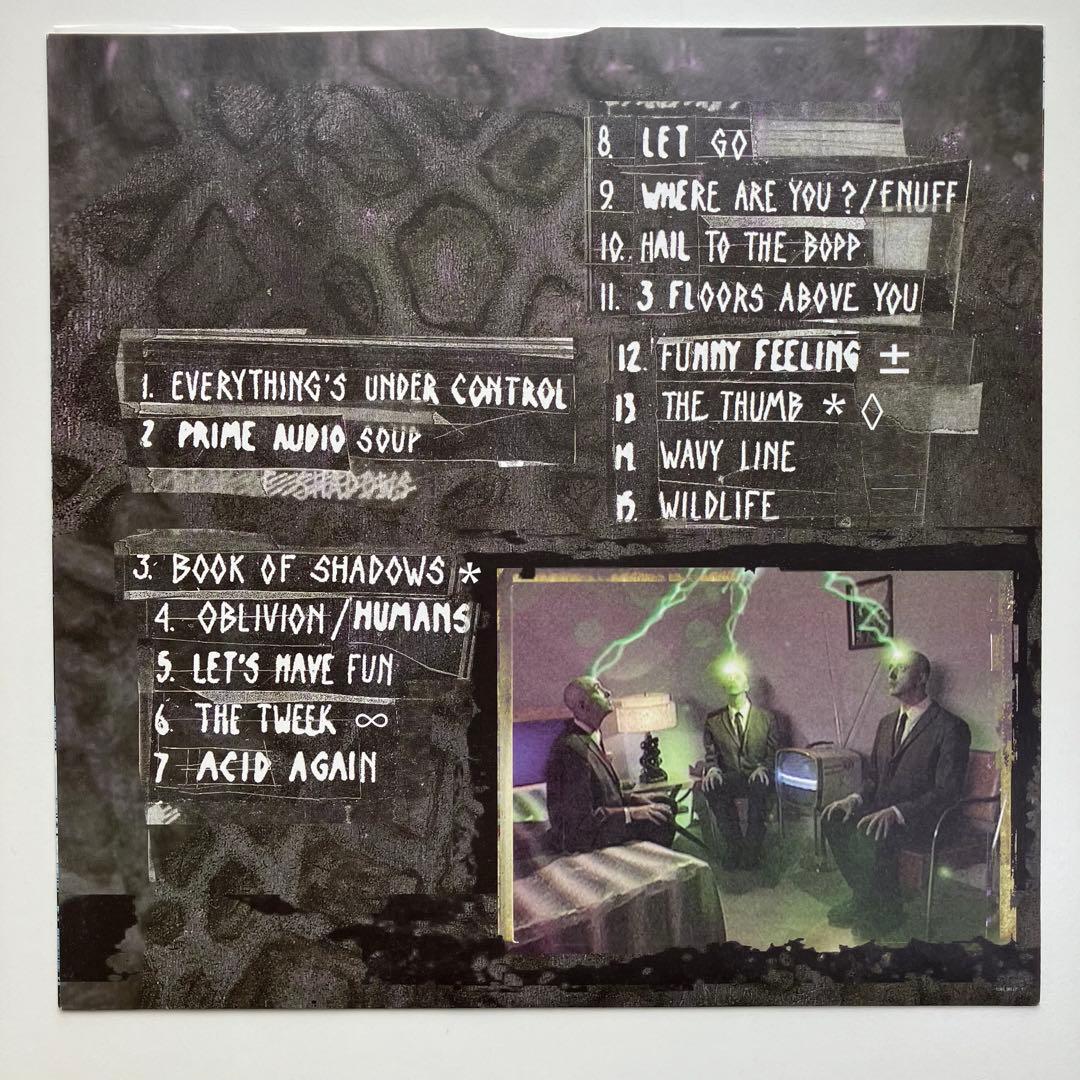 1. EVERYTHING'S UNDER CONTROL
2 PRIME AUDIO SOUP
SHADOWS
3. BOOK OF SHADOWS *
4. OBLIVION/HUMANS
5. LET'S HAVE FUN
6. THE TWEEK ∞
7 ACID AGAIN
8. LET GO
9 WHERE ARE YOU?/ENUFF
10. HAIL TO THE BOPP
11. 3 FLOORS ABOVE YOU
12. FUNNY FEELING ±
13 THE THUMB * ◊
14 WAVY LINE
15. WILDLIFE